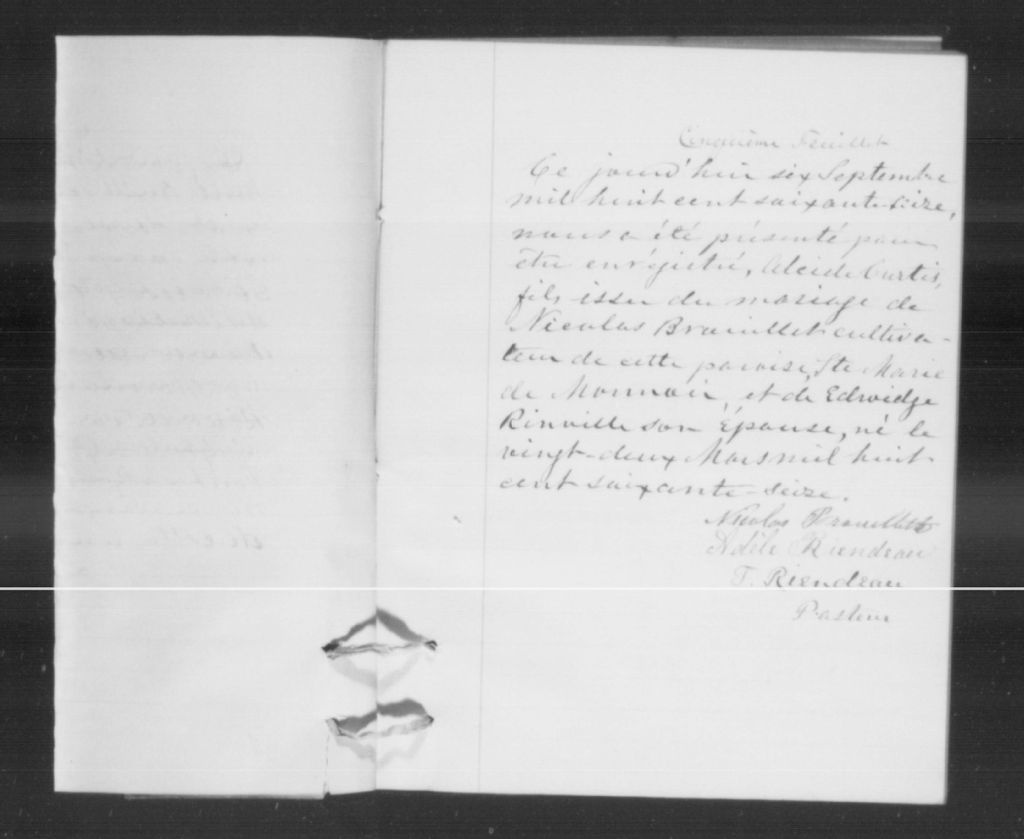 Cinquième Feuillet
Ce jourd'hui six Septembre
mil huit cent soixante-seize,
nous a été présenté pour
être enrégistré, Alcide Curtis,
fils issu du mariage de
Nicolas Brouillet cultiva-
teur de cette paroise, Ste Marie
de Monnoir, et de Edwidge
Rinville son Épouse, né le
vingt-deux Mars mil huit
cent soixante-seize.
Nicolas Brouillet
Adèle Riendeau
T. Riendeau
Pasteur